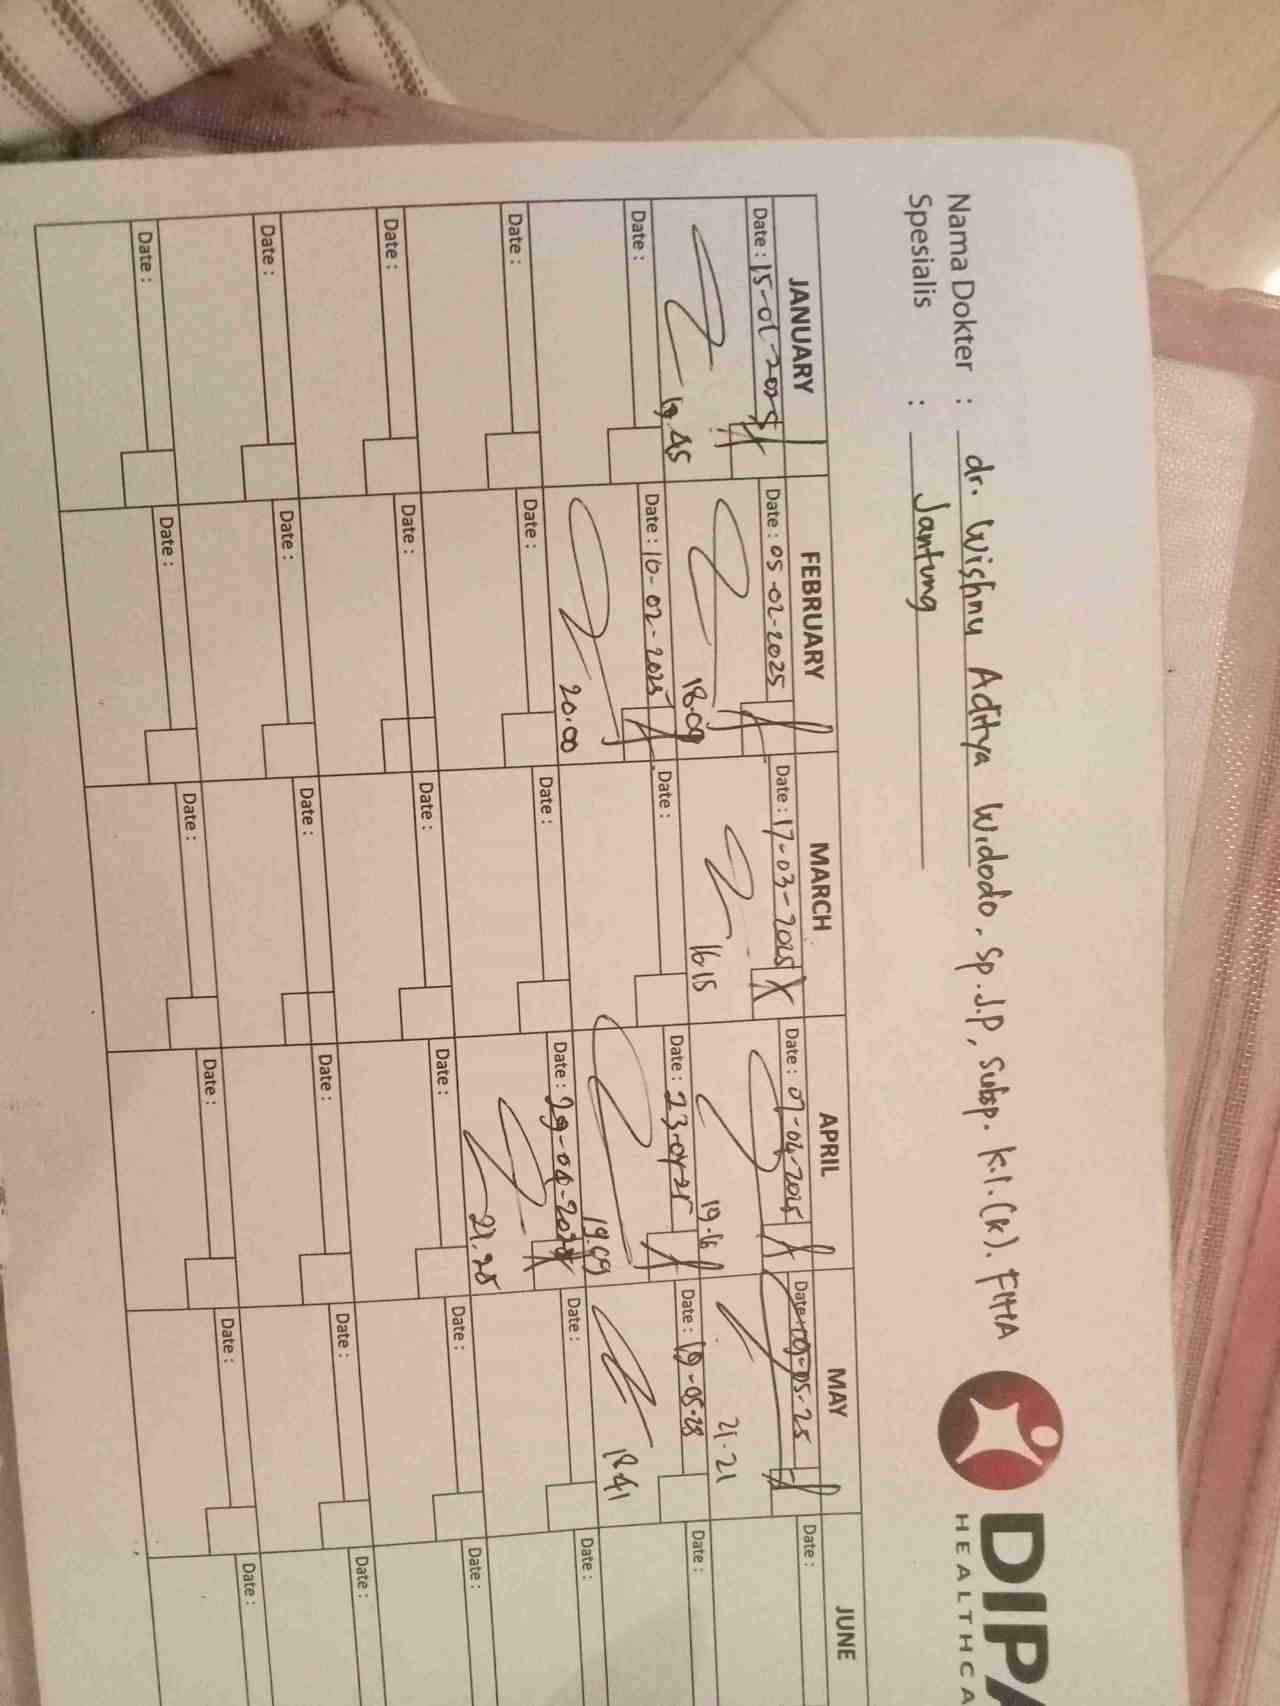 DIPA
HEALTHCA
Nama Dokter : dr. Wishnu Aditya Widodo. Sp.J.P, Subsp. K.I.(K). FIHA
Spesialis : Jantung
JANUARY FEBRUARY MARCH APRIL MAY JUNE
Date : 15-01-2025 Date : 05-02-2025 Date : 17-03-2025 Date : 07-04-2025 Date : 09-05-25 Date :
19.45 18.09 16.15 19.16 21-21
Date : Date : 10-02-2025 Date : Date : 23-04-25 Date : 19-05-25 Date :
20.00 19.09 18.41
Date : Date : Date : Date : 29-04-2025 Date : Date :
Date : Date : Date : Date : Date : Date :
Date : Date : Date : Date : Date : Date :
Date : Date : Date : Date : Date : Date :